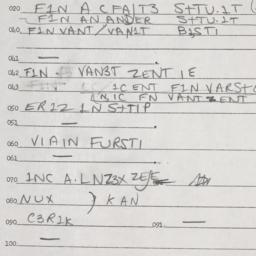 020 FIN A CFAIT3 STTU.IT
FIN AN ANDER STTU.IT
040 FINVANT/VANIT BISTI
041 —
042 FIN VAN3T ZENT IE
043 ICENT FIN VARST
IN.IC FN VANT ZENT
050 ERIZ IN STIP
051 —
060 VIAIN FURSTI
061 —
070 INC A.LNZ3X ZEJE
080 NUX } KAN
090 C3RIK 091 —
100 —